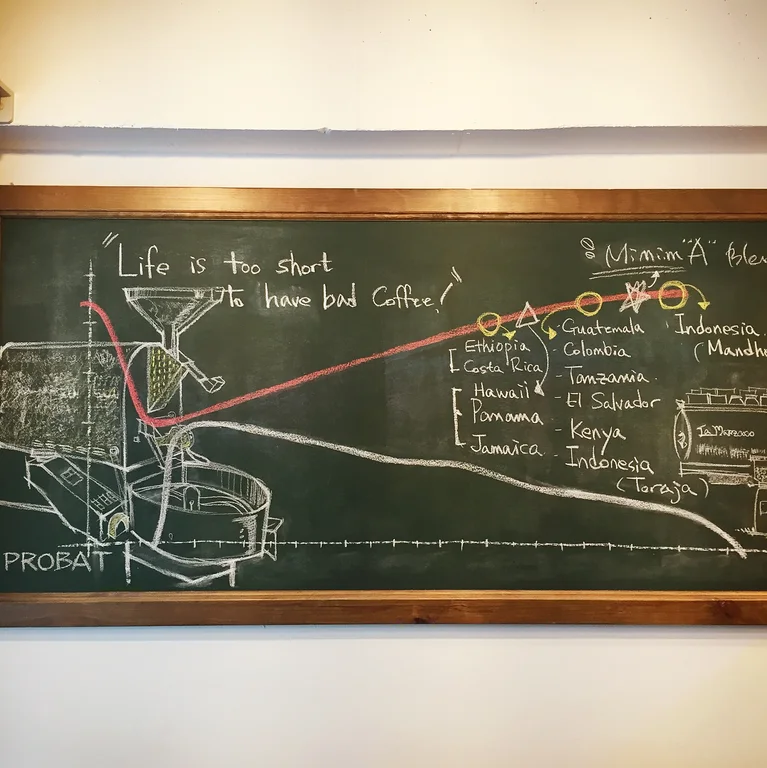 "Life is too short
to have bad Coffee!"
Minim "A" Ble
Ethiopia
Costa Rica
Hawaii
Panama
Jamaica
- Guatemala
- Colombia
- Tanzania
- El Salvador
- Kenya
- Indonesia
(Toraja)
Indonesia
(Mandh
La Marzocco
PROBAT